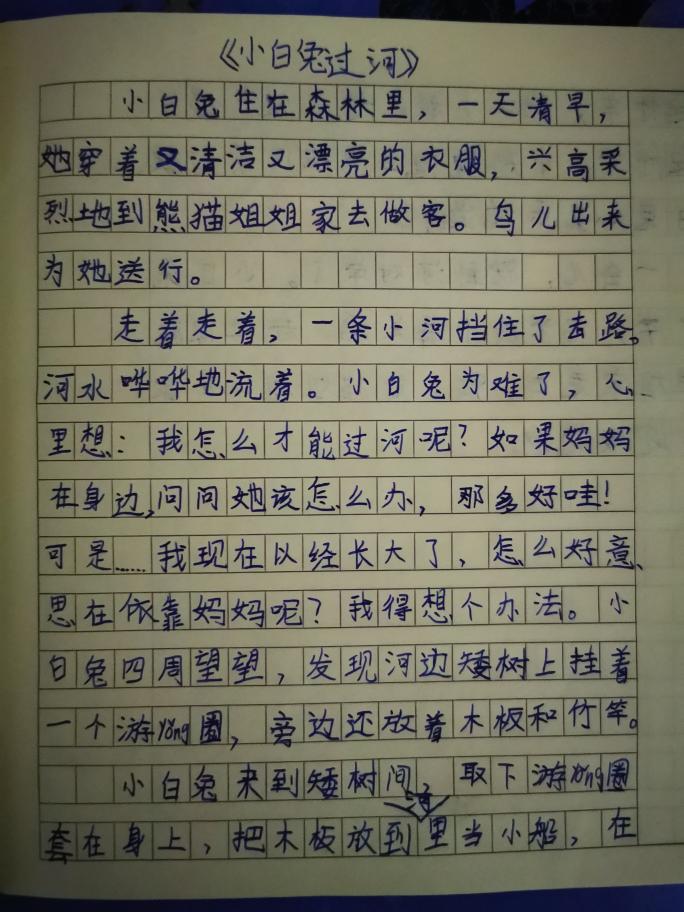 《小白兔过河》
小白兔住在森林里，一天清早，
她穿着又清洁又漂亮的衣服，兴高采
烈地到熊猫姐姐家去做客。鸟儿出来
为她送行。
走着走着，一条小河挡住了去路。
河水哗哗地流着。小白兔为难了，心
里想：我怎么才能过河呢？如果妈妈
在身边，问问她该怎么办，那多好哇！
可是……我现在以经长大了，怎么好意
思在依靠妈妈呢？我得想个办法。小
白兔四周望望，发现河边矮树上挂着
一个游yǒng圈，旁边还放着木板和竹竿。
小白兔来到矮树间，取下游yǒng圈
套在身上，把木板放到河里当小船，在